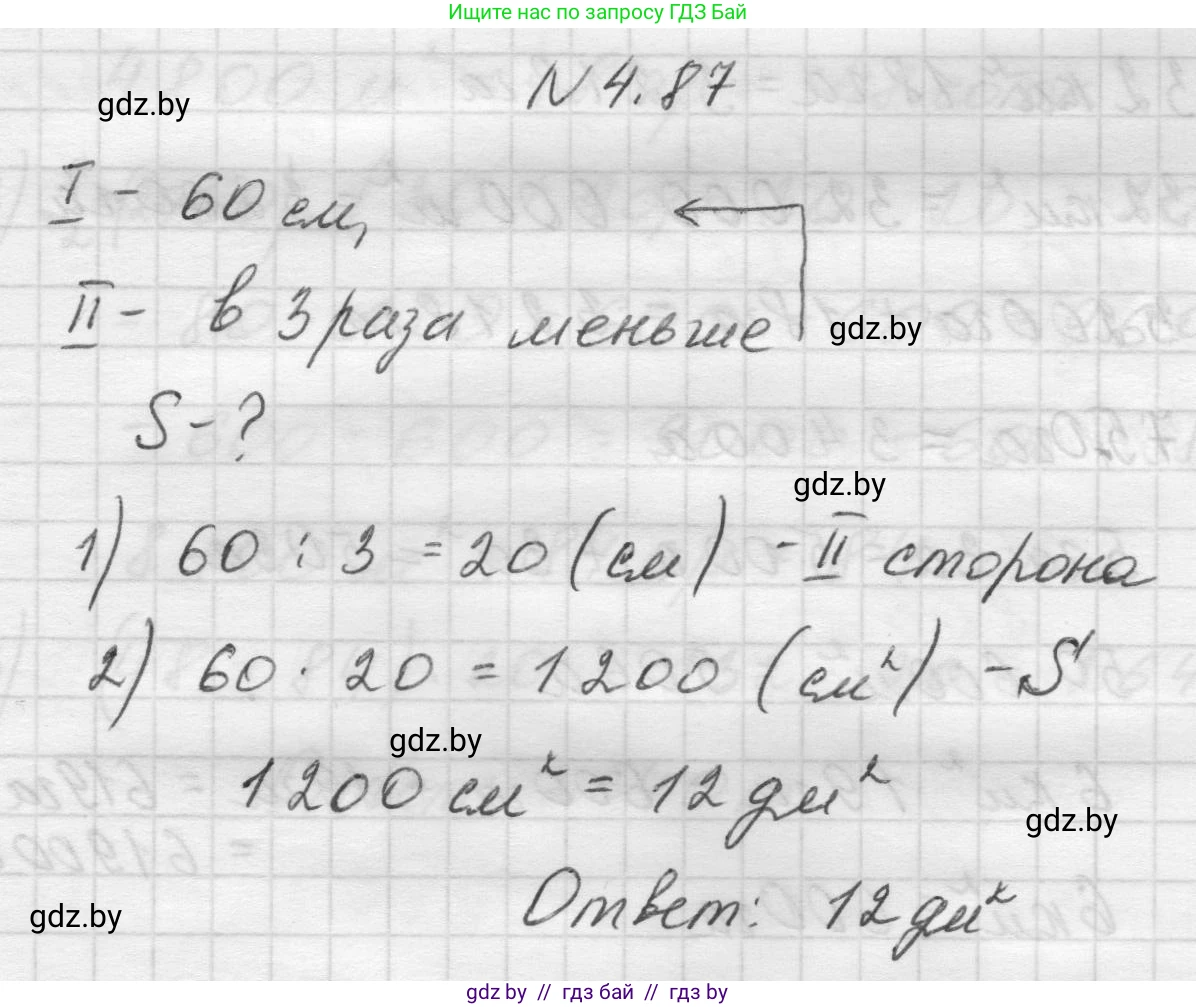 Ищите нас по запросу ГДЗ Бай
N 4.87
gdz.by
I - 60 см,
II - в 3 раза меньше
gdz.by
S - ?
gdz.by
1) 60 : 3 = 20 (см) - II сторона
2) 60 · 20 = 1200 (см²) - S
gdz.by
1200 см² = 12 дм²
gdz.by
Ответ: 12 дм²
gdz.by
gdz by // гдз бай // гдз by